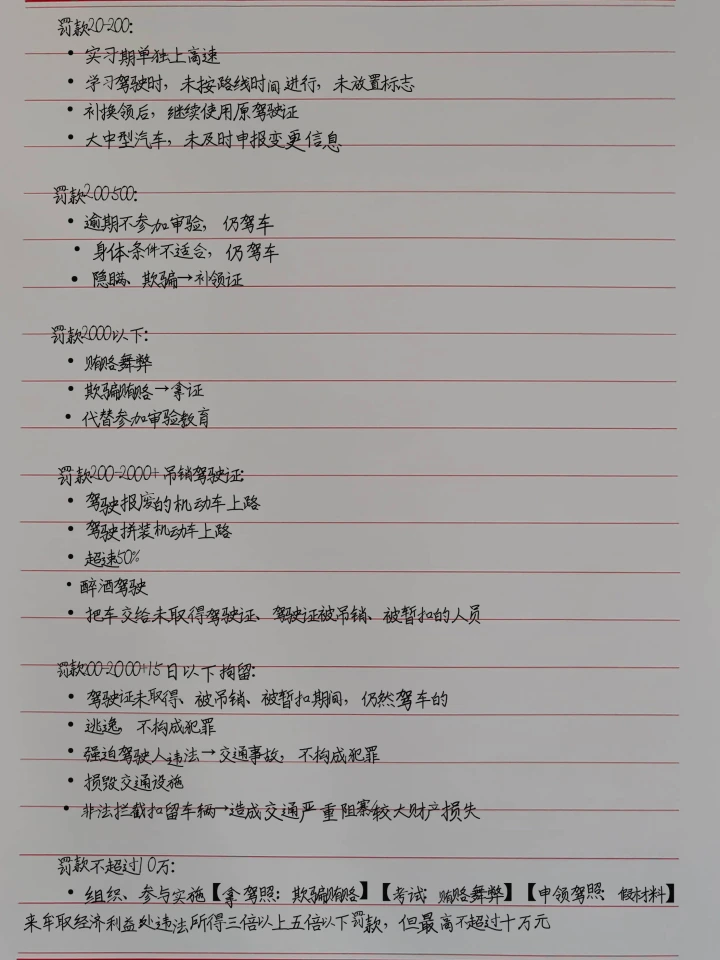 罚款20-200:
• 实习期单独上高速
• 学习驾驶时，未按路线时间进行，未放置标志
• 补换领后，继续使用原驾驶证
• 大中型汽车，未及时申报变更信息
罚款200-500:
• 逾期不参加审验，仍驾车
• 身体条件不适合，仍驾车
• 隐瞒、欺骗→补领证
罚款2000以下:
• 贿赂舞弊
• 欺骗贿赂→拿证
• 代替参加审验教育
罚款200-2000+吊销驾驶证:
• 驾驶报废的机动车上路
• 驾驶拼装机动车上路
• 超速50%
• 醉酒驾驶
• 把车交给未取得驾驶证、驾驶证被吊销、被暂扣的人员
罚款00-2000+15日以下拘留:
• 驾驶证未取得、被吊销、被暂扣期间，仍然驾车的
• 逃逸，不构成犯罪
• 强迫驾驶人违法→交通事故，不构成犯罪
• 损毁交通设施
• 非法拦截扣留车辆→造成交通严重阻塞/较大财产损失
罚款不超过10万:
• 组织、参与实施【拿驾照：欺骗贿赂】【考试：贿赂舞弊】【申领驾照：假材料】
来牟取经济利益处违法所得三倍以上五倍以下罚款，但最高不超过十万元